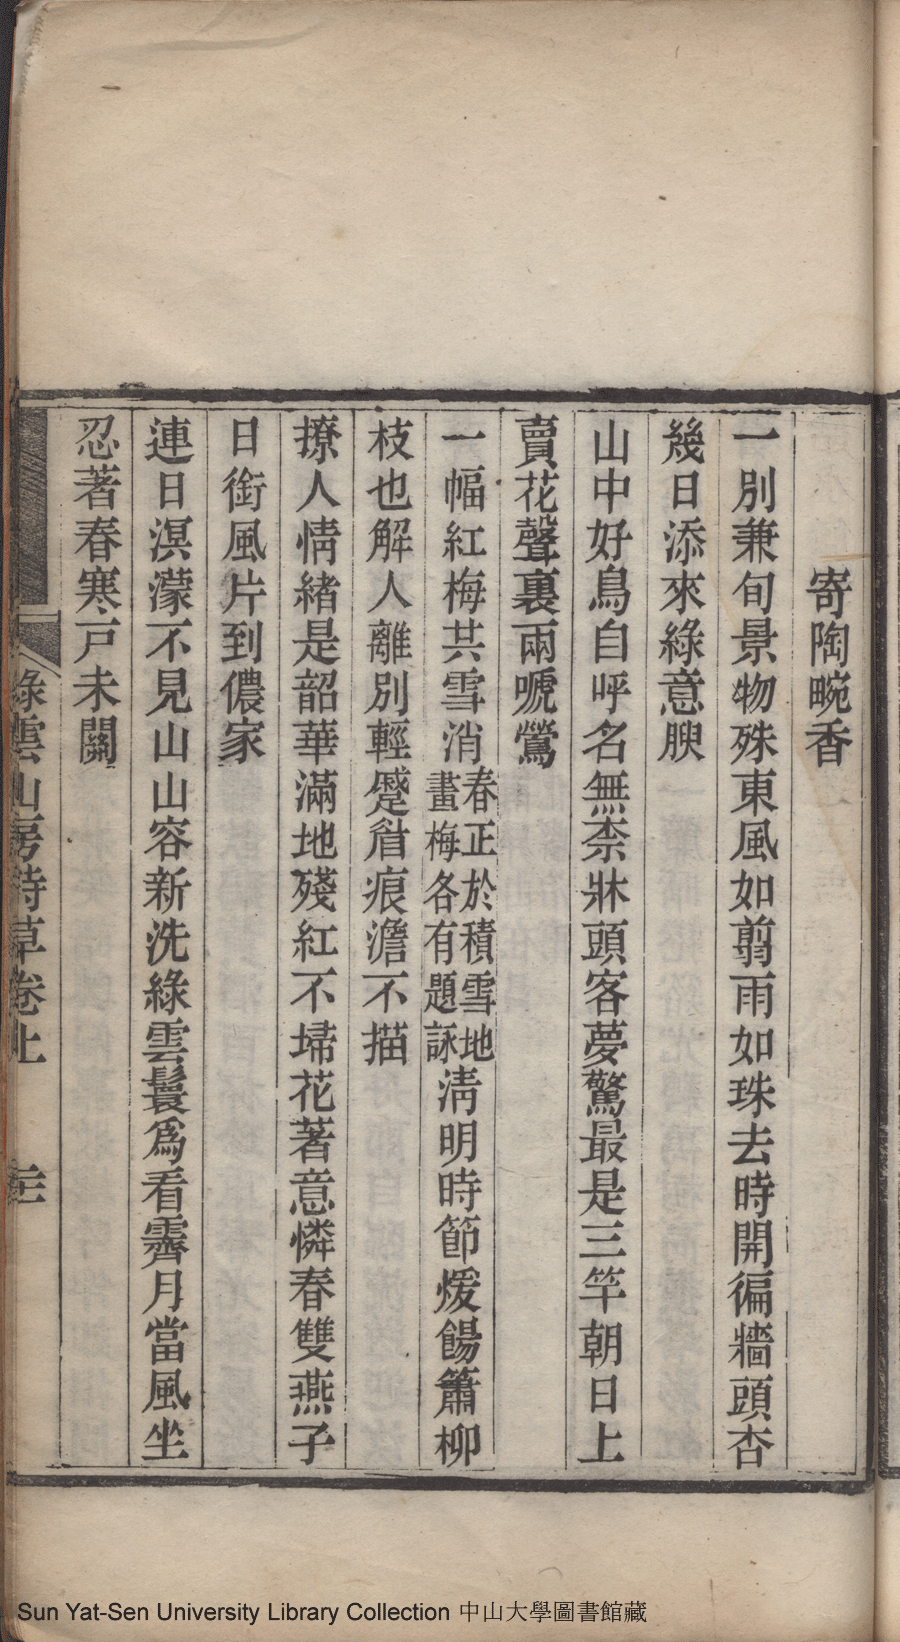 寄陶畹香
一別兼旬景物殊東風如翦雨如珠去時開徧牆頭杏
幾日添來綠意腴
山中好鳥自呼名無柰牀頭客夢驚最是三竿朝日上
賣花聲裏兩嗁鶯
一幅紅梅共雪消春正於積雪地畫梅各有題詠淸明時節煖餳簫柳
枝也解人離別輕蹙眉痕澹不描
撩人情緒是韶華滿地殘紅不埽花著意憐春雙燕子
日銜風片到儂家
連日溟濛不見山山容新洗綠雲鬟爲看霽月當風坐
忍著春寒戸未關
綠雲山房詩草卷上
二十一
Sun Yat-Sen University Library Collection 中山大學圖書館藏